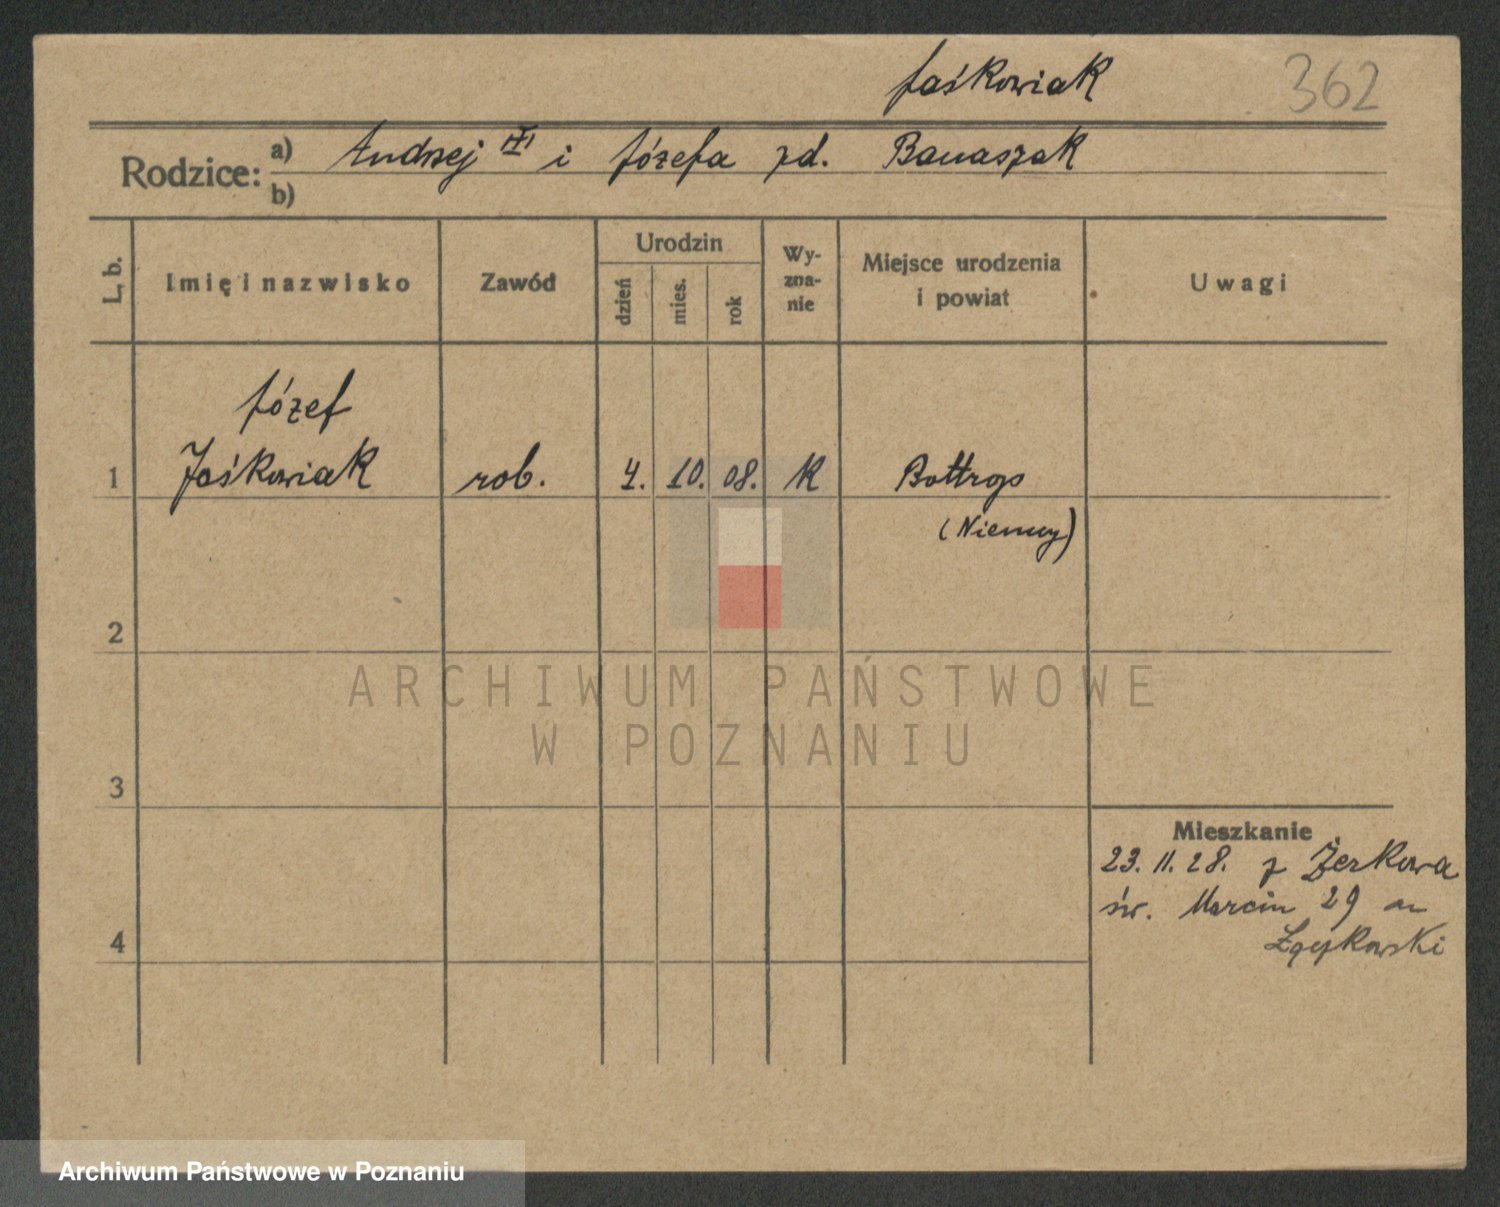 Jaśkowiak
362
Rodzice: a) Andrzej i Józefa zd. Banaszak
b)
L, b.
Imię i nazwisko
Zawód
Urodzin
dzień
mies.
rok
Wy-
zna-
nie
Miejsce urodzenia
i powiat
Uwagi
Józef
1 Jaśkowiak rob. 4. 10. 08. k Bottrop
(Niemcy)
2
ARCHIWUM PAŃSTWOWE
W POZNANIU
3
Mieszkanie
23. 11. 28. z Żerkowa
św. Marcin 29
4
Archiwum Państwowe w Poznaniu